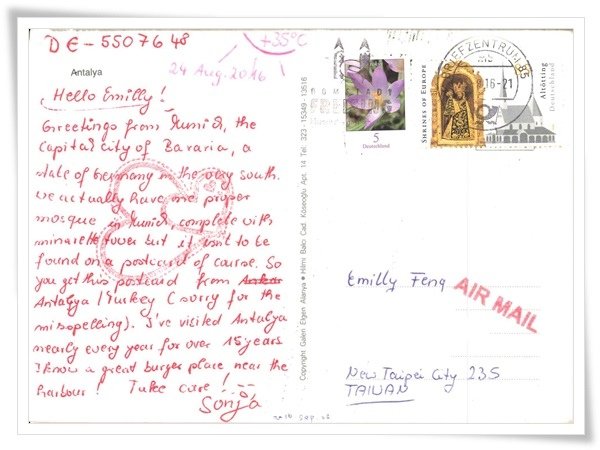 DE-5507648
+35°C
24 Aug. 2016
Antalya
Hello Emilly!
Greetings from Munich, the
capital city of Bavaria, a
state of Germany in the very south.
We actually have one proper
mosque in Munich complete with
minarette tower but it isn't to be
found on a postcard of course. So
you get this postcard from
Antalya / Turkey (sorry for the
misspelling). I've visited Antalya
nearly every year for over 15 years
I know a great burger place near the
harbour! Take care!
Sonja
Copyright Galeri Elgen Alanya • Hilmi Balcı Cad. Köseoğlu Apt. 14 Tel: 323 - 15349 - 13516
5
Deutschland
SHRINES OF EUROPE
BRIEFZENTRUM 85
16-21
Altötting
Deutschland
Emilly Feng
AIR MAIL
New Taipei City 235
TAIWAN